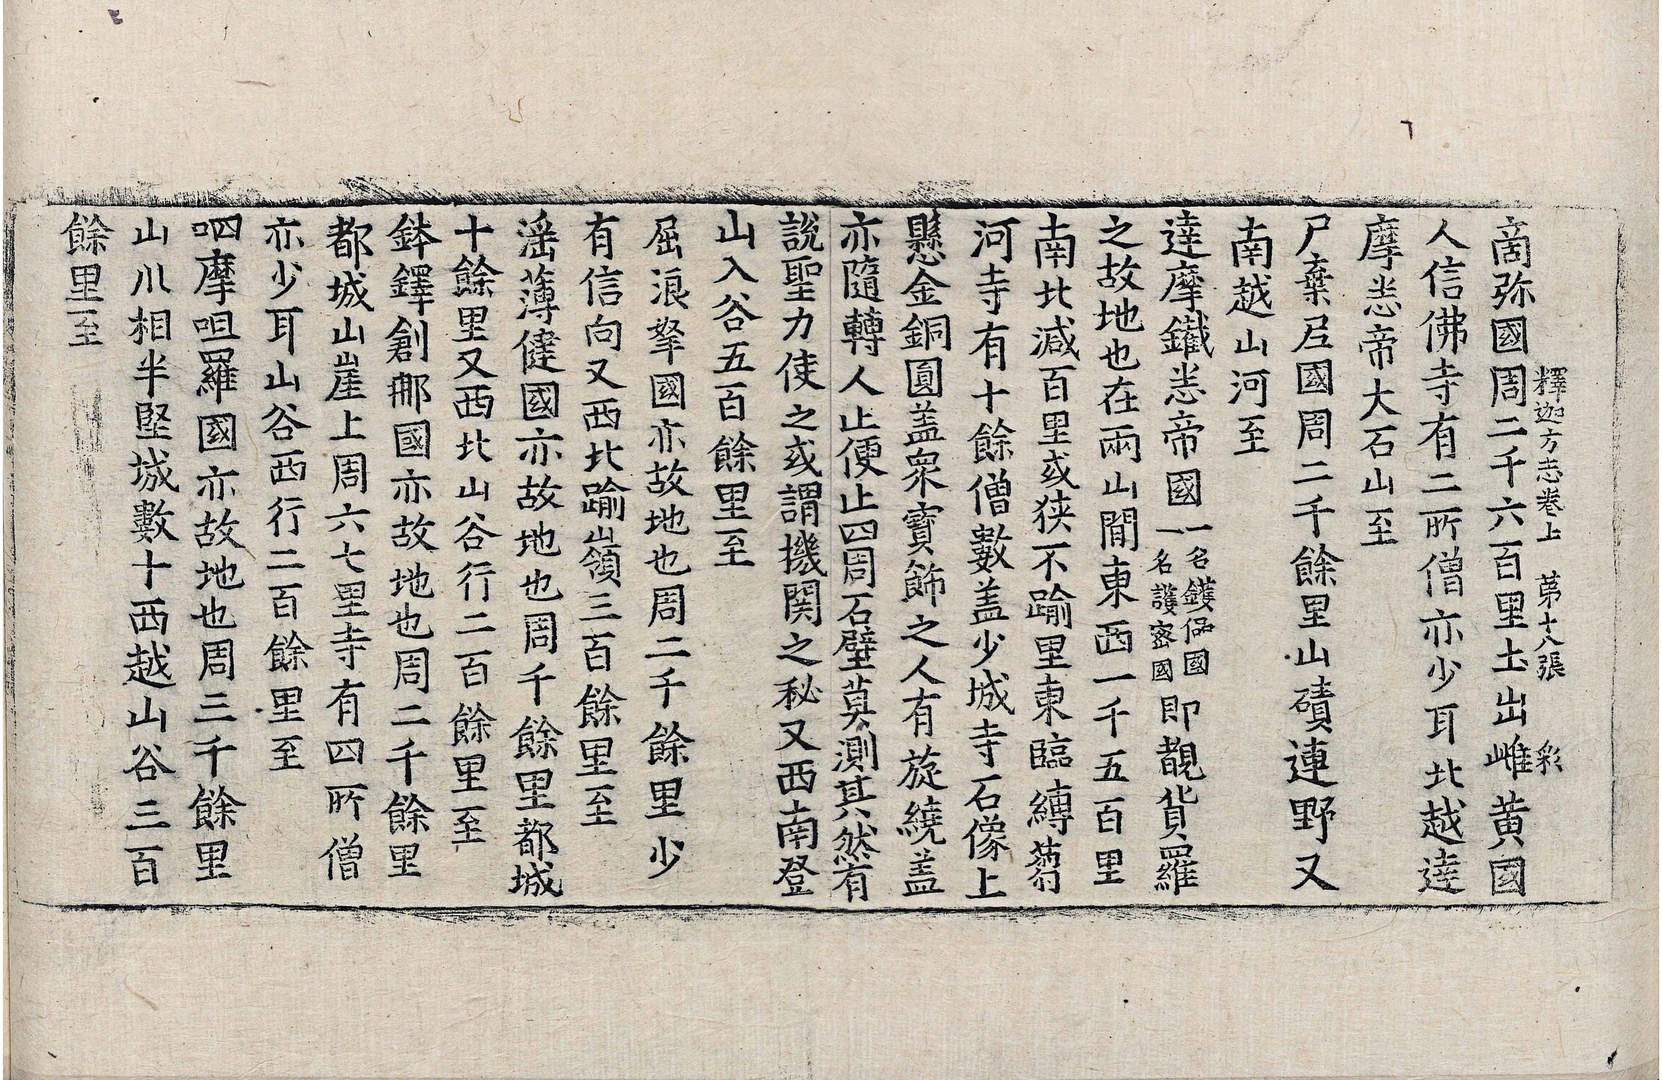 釋迦方志卷上　第十八張　彩
商弥國周二千六百里土出雌黃國
人信佛寺有二所僧亦少耳北越達
摩悉帝大石山至
尸棄尼國周二千餘里山磧連野又
南越山河至
達摩鐵悉帝國一名鑊偘國一名護密國即覩貨羅
之故地也在兩山間東西一千五百里
南北減百里或狹不踰里東臨縛芻
河寺有十餘僧數盖少城寺石像上
懸金銅圓盖衆寶飾之人有旋繞盖
亦隨轉人止便止四周石壁莫測其然有
說聖力使之或謂機関之秘又西南登
山入谷五百餘里至
屈浪拏國亦故地也周二千餘里少
有信向又西北踰嶺三百餘里至
滛薄健國亦故地也周千餘里都城
十餘里又西北山谷行二百餘里至
鉢鐸創那國亦故地也周二千餘里
都城山崖上周六七里寺有四所僧
亦少耳山谷西行二百餘里至
呬摩呾羅國亦故地也周三千餘里
山川相半堅城數十西越山谷三百
餘里至